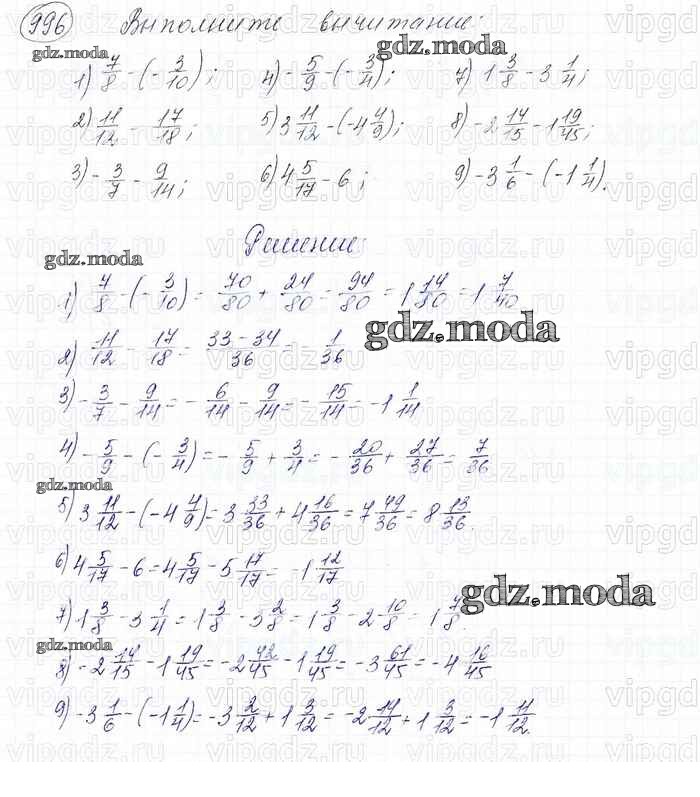 996 Выполните вычитание:
gdz.moda
gdz.moda
1) 7/8 - (-3/10); 4) -5/9 - (-3/4); 7) 1 3/8 - 3 1/4;
2) 11/12 - 17/18; 5) 3 11/12 - (-4 4/9); 8) -2 14/15 - 1 19/45;
3) -3/7 - 9/14; 6) 4 5/17 - 6; 9) -3 1/6 - (-1 1/4).
Решение:
gdz.moda
1) 7/8 - (-3/10) = 70/80 + 24/80 = 94/80 = 1 14/80 = 1 7/40
gdz.moda
2) 11/12 - 17/18 = 33-34/36 = - 1/36
3) -3/7 - 9/14 = -6/14 - 9/14 = -15/14 = -1 1/14
4) -5/9 - (-3/4) = -5/9 + 3/4 = -20/36 + 27/36 = 7/36
gdz.moda
5) 3 11/12 - (-4 4/9) = 3 33/36 + 4 16/36 = 7 49/36 = 8 13/36.
6) 4 5/17 - 6 = 4 5/17 - 5 17/17 = -1 12/17
gdz.moda
7) 1 3/8 - 3 1/4 = 1 3/8 - 3 2/8 = 1 3/8 - 2 10/8 = -1 7/8.
gdz.moda
8) -2 14/15 - 1 19/45 = -2 42/45 - 1 19/45 = -3 61/45 = -4 16/45
9) -3 1/6 - (-1 1/4) = -3 2/12 + 1 3/12 = -2 14/12 + 1 3/12 = -1 11/12.
vipgdz.ru